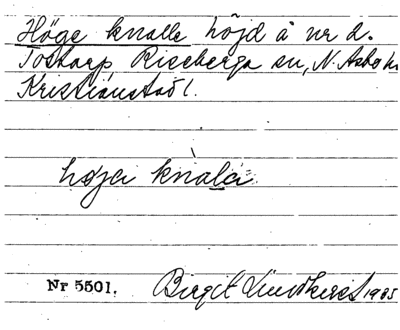 Höge knalle höjd å nr 2.
Tostarp Riseberga sn, N. Asbo hd
Kristianstad l.
højə knàlə
Nr 5501. Birgit Lindkvist 1935